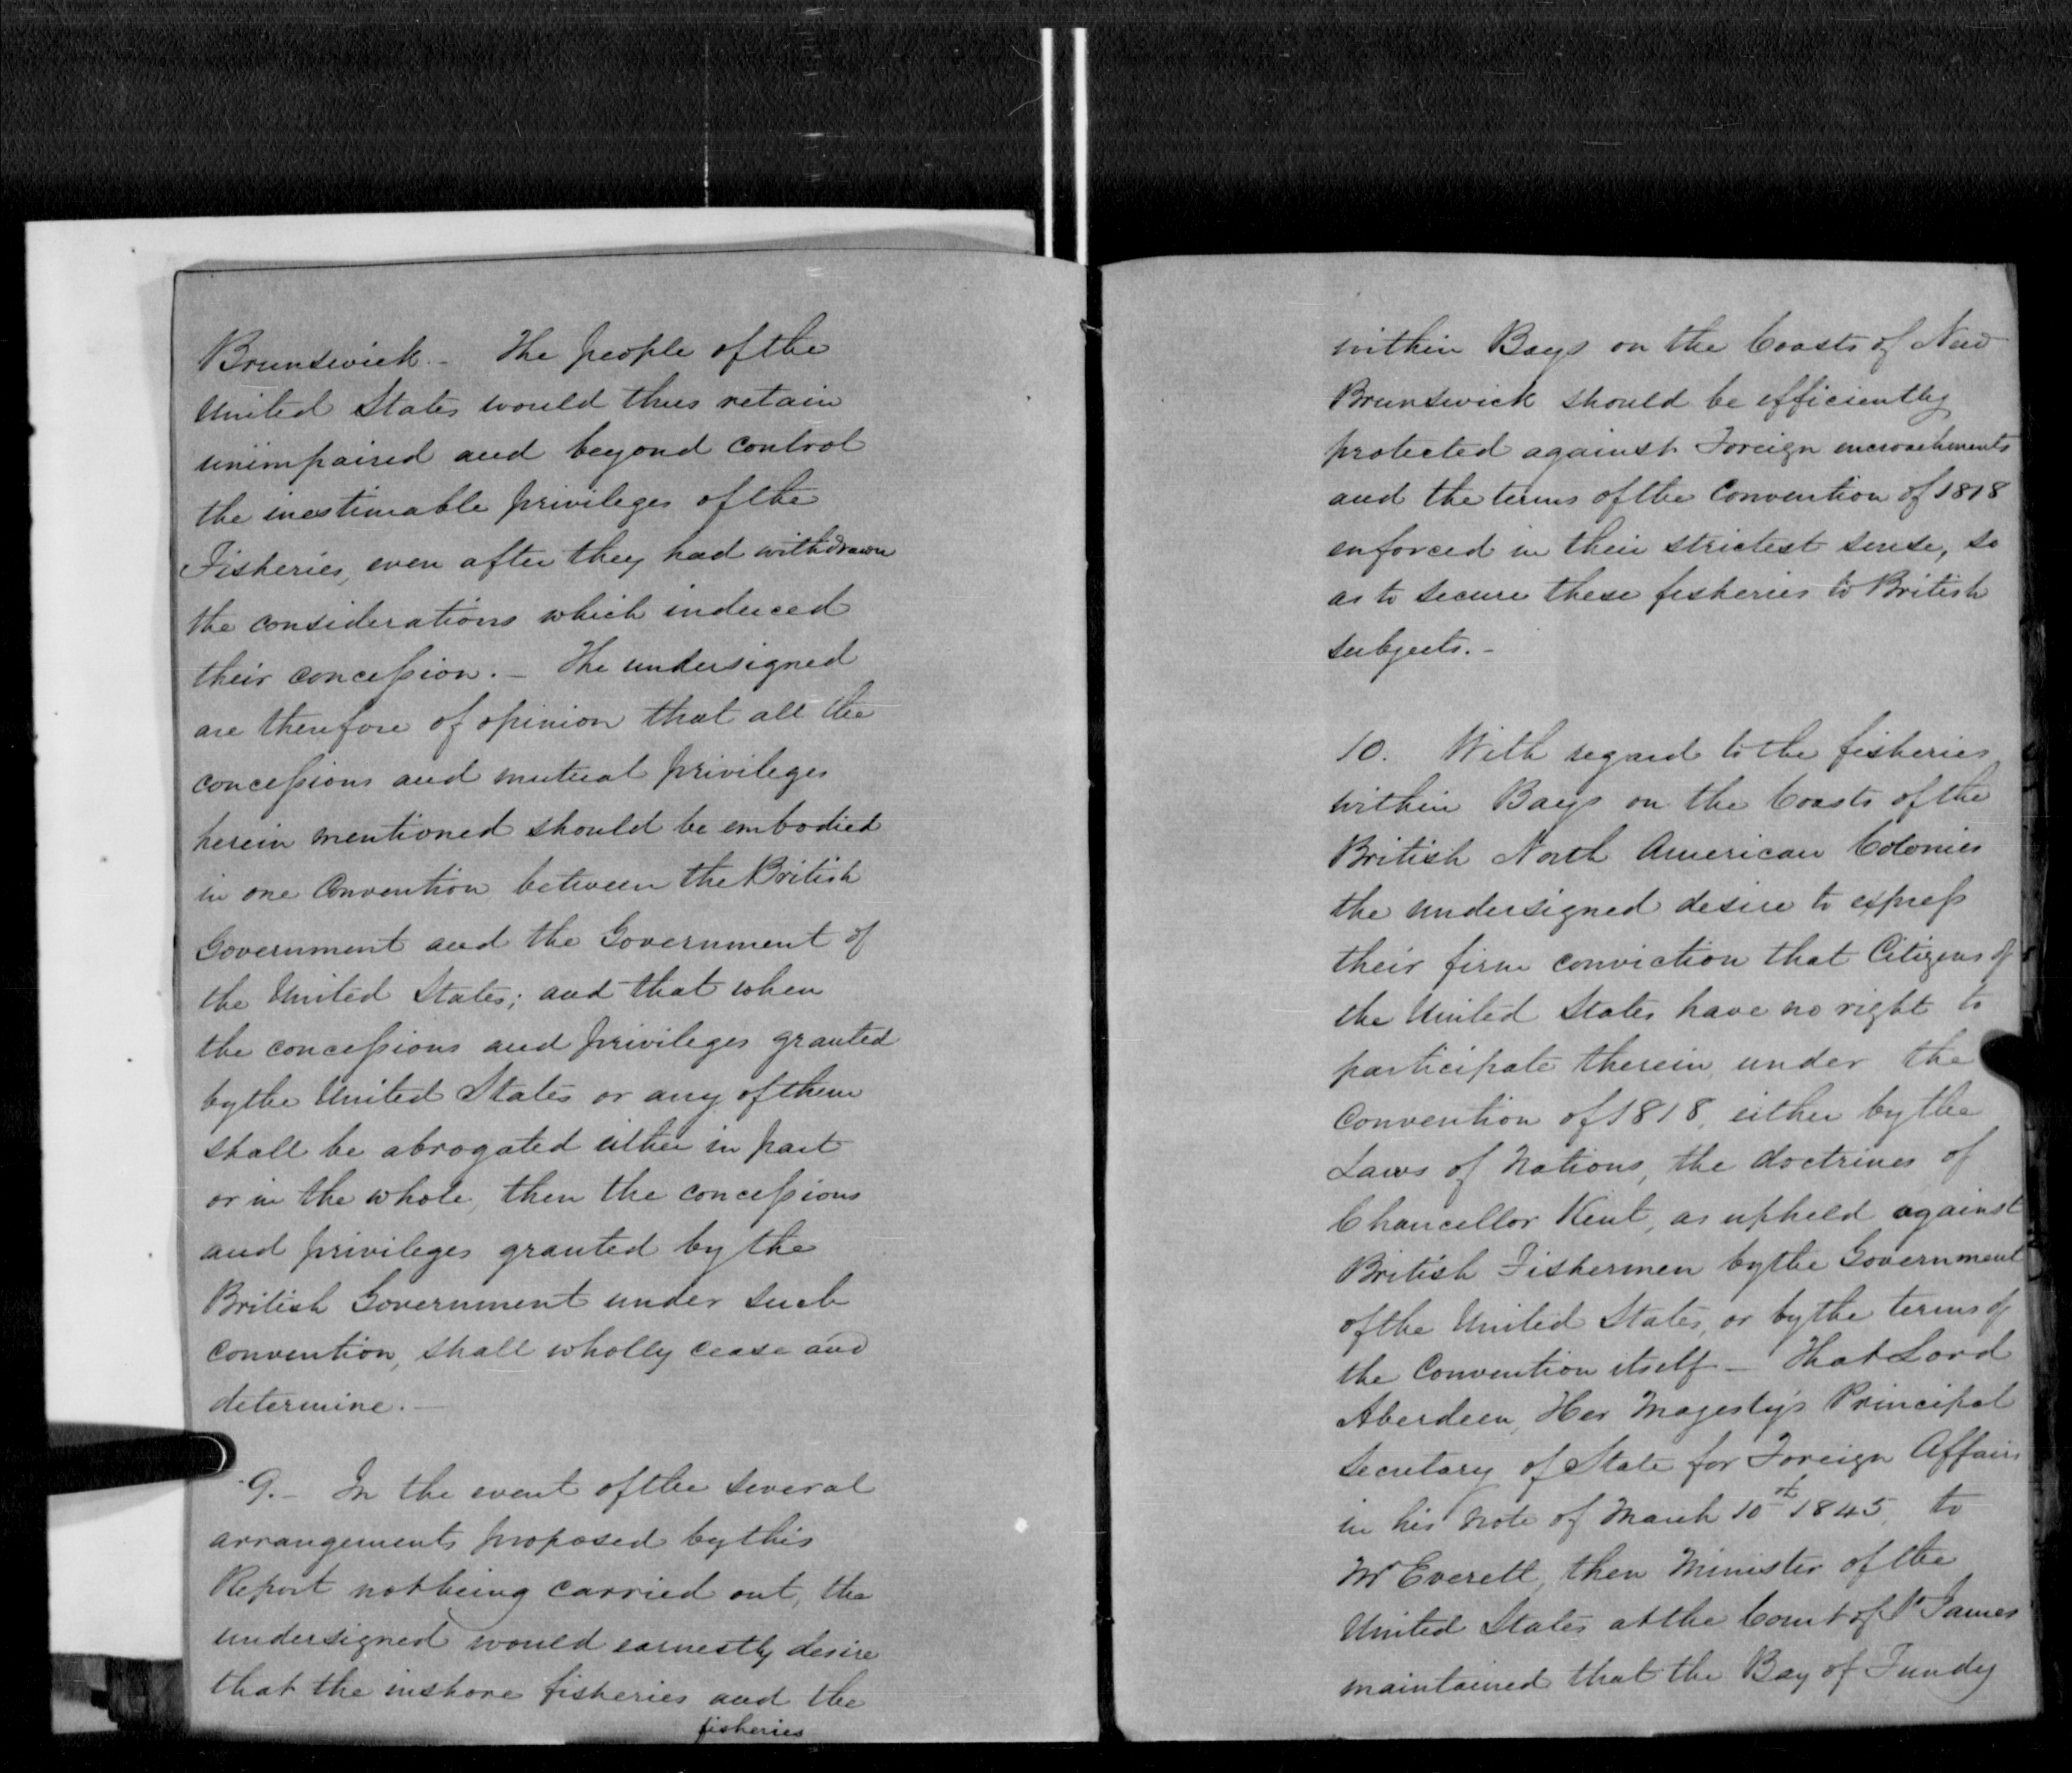 Brunswick. - The people of the
United States would thus retain
unimpaired and beyond control
the inestimable privileges of the
Fisheries, even after they had withdrawn
the considerations which induced
their concession. - The undersigned
are therefore of opinion that all the
concessions and mutual privileges
herein mentioned should be embodied
in one Convention between the British
Government and the Government of
the United States; and that when
the concessions and privileges granted
by the United States or any of them
shall be abrogated either in part
or in the whole, then the concessions
and privileges granted by the
British Government under such
convention, shall wholly cease and
determine. -
9. - In the event of the several
arrangements proposed by this
Report not being carried out, the
undersigned would earnestly desire
that the inshore fisheries and the
fisheries
within Bays on the Coasts of New
Brunswick should be efficiently
protected against Foreign encroachments
and the terms of the Convention of 1818
enforced in their strictest sense, so
as to secure these fisheries to British
subjects. -
10. With regard to the fisheries
within Bays on the Coasts of the
British North American Colonies
the undersigned desire to express
their firm conviction that Citizens of
the United States have no right to
participate therein, under the
Convention of 1818, either by the
Laws of Nations, the doctrines of
Chancellor Kent, as upheld against
British Fishermen by the Government
of the United States, or by the terms of
the Convention itself - That Lord
Aberdeen, Her Majesty's Principal
Secretary of State for Foreign Affairs
in his note of March 10th 1845, to
Mr Everett, then Minister of the
United States at the Court of St James
maintained that the Bay of Fundy